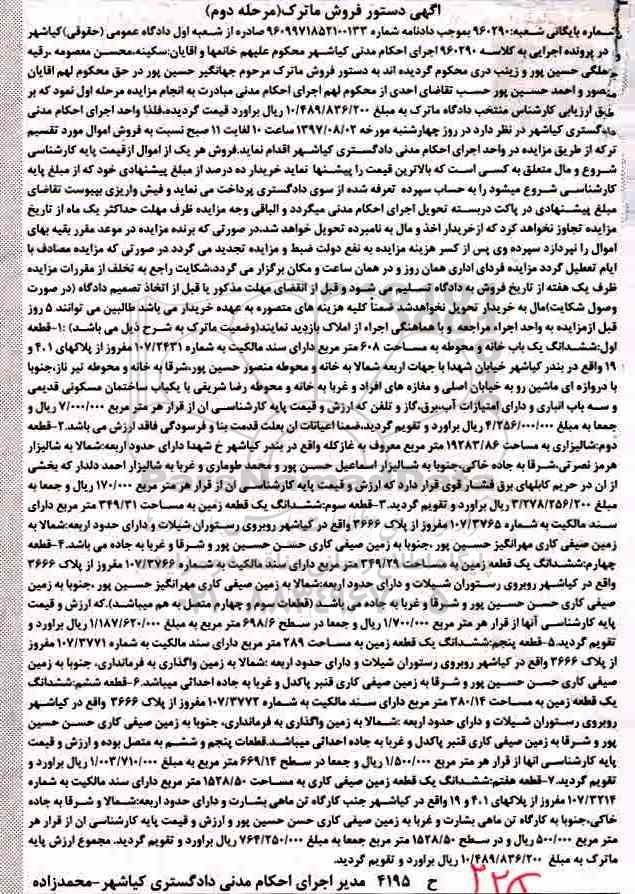 آگهی دستور فروش ماترک(مرحله دوم)
شماره بایگانی شعبه:۹۶۰۲۹۰ بموجب دادنامه شماره ۹۶۰۹۹۷۱۸۵۲۱۰۰۱۳۳ صادره از شعبه اول دادگاه عمومی (حقوقی)کیاشهر
و در پرونده اجرایی به کلاسه ۹۶۰۲۹۰ اجرای احکام مدنی کیاشهر محکوم علیهم خانمها و اقایان:سکینه،محسن معصومه ،رقیه
جملگی حسین پور و زینب دری محکوم گردیده اند به دستور فروش ماترک مرحوم جهانگیر حسین پور در حق محکوم لهم اقایان
منصور و احمد حسین پور حسب تقاضای احدی از محکوم لهم اجرای احکام مدنی مبادرت به انجام مزایده مرحله اول نمود که بر
طبق ارزیابی کارشناس منتخب دادگاه ماترک به مبلغ ۱۰/۴۸۹/۸۳۶/۲۰۰ ریال براورد قیمت گردیده.فلذا واحد اجرای احکام مدنی
دادگستری کیاشهر در نظر دارد در روز چهارشنبه مورخه ۱۳۹۷/۰۸/۰۲ ساعت ۱۰ لغایت ۱۱ صبح نسبت به فروش اموال مورد تقسیم
ترکه از طریق مزایده در واحد اجرای احکام مدنی دادگستری کیاشهر اقدام نماید.فروش هر یک از اموال ازقیمت پایه کارشناسی
شروع و مال متعلق به کسی است که بالاترین قیمت را پیشنها نماید خریدار ده درصد از مبلغ پیشنهادی خود که از مبلغ پایه
کارشناسی شروع میشود را به حساب سپرده تعرفه شده از سوی دادگستری پرداخت می نماید و فیش واریزی بپیوست تقاضای
مبلغ پیشنهادی در پاکت دربسته تحویل اجرای احکام مدنی میگردد و الباقی وجه مزایده ظرف مهلت حداکثر یک ماه از تاریخ
مزایده تجاوز نخواهد کرد که ازخریدار اخذ و مال به نامبرده تحویل خواهد شد.در صورتی که برنده مزایده در موعد مقرر بقیه بهای
اموال را نپردازد سپرده وی پس از کسر هزینه مزایده به نفع دولت ضبط و مزایده تجدید می گردد در صورتی که مزایده مصادف با
ایام تعطیل گردد مزایده فردای اداری همان روز و در همان ساعت و مکان برگزار می گردد.شکایت راجع به تخلف از مقررات مزایده
ظرف یک هفته از تاریخ فروش به دادگاه تسلیم می شود و قبل از انقضای مهلت مذکور یا قبل از اتخاذ تصمیم دادگاه (در صورت
وصول شکایت)مال به خریدار تحویل نخواهدشد ضمناً کلیه هزینه های متصوره به عهده خریدار می باشد طالبین می توانند ۵ روز
قبل ازمزایده به واحد اجراء مراجعه و با هماهنگی اجراء از املاک بازدید نمایند(وضعیت ماترک به شرح ذیل می باشد) :۱-قطعه
اول:ششدانگ یک باب خانه و محوطه به مساحت ۶۰۸ متر مربع دارای سند مالکیت به شماره ۱۰۷/۲۴۳۱ مفروز از پلاکهای ۴،۱ و
۱۹ واقع در بندر کیاشهر خیابان شهدا با جهات اربعه شمالا به خانه و محوطه منصور حسین پور،شرقا به خانه و محوطه تیر ناز،جنوبا
با دروازه ای ماشین رو به خیابان اصلی و مغازه های افراد و غربا به خانه و محوطه رضا شریفی با یکباب ساختمان مسکونی قدیمی
و سه باب انباری و دارای امتیازات آب،برق،گاز و تلفن که ارزش و قیمت پایه کارشناسی ان از قرار هر متر مربع ۷/۰۰۰/۰۰۰ ریال و
جمعا به مبلغ ۴/۲۵۶/۰۰۰/۰۰۰ ریال براورد و تقویم گردید،ضمنا اعیانات ان بعلت قدمت بنا و فرسودگی فاقد ارزش می باشد.۲-قطعه
دوم:شالیزاری به مساحت ۱۹۲۸۳/۸۶ متر مربع معروف به غازکله واقع در بندر کیاشهر خ شهدا دارای حدود اربعه:شمالا به شالیزار
هرمز نصرتی،شرقا به جاده خاکی،جنوبا به شالیزار اسماعیل حسن پور و محمد طوماری و غربا به شالیزار احمد دلدار که بخشی
از ان در حریم کابلهای برق فشار قوی قرار دارد که ارزش و قیمت پایه کارشناسی ان از قرار هر متر مربع ۱۷۰/۰۰۰ ریال و جمعا به
مبلغ ۳/۲۷۸/۲۵۶/۲۰۰ ریال براورد و تقویم گردید.۳-قطعه سوم:ششدانگ یک قطعه زمین به مساحت ۳۴۹/۳۱ متر مربع دارای
سند مالکیت به شماره ۱۰۷/۳۷۶۵ مفروز از پلاک ۳۶۶۶ واقع در کیاشهر روبروی رستوران شیلات و دارای حدود اربعه:شمالا به
زمین صیفی کاری مهرانگیز حسین پور ،جنوبا به زمین صیفی کاری حسن حسین پور و شرقا و غربا به جاده می باشد.۴-قطعه
چهارم:ششدانگ یک قطعه زمین به مساحت ۳۴۹/۲۹ متر مربع دارای سند مالکیت به شماره ۱۰۷/۳۷۶۶ مفروز از پلاک ۳۶۶۶
واقع در کیاشهر روبروی رستوران شیلات و دارای حدود اربعه:شمالا به زمین صیفی کاری مهرانگیز حسین پور ،جنوبا به زمین
صیفی کاری حسن حسین پور و شرقا و غربا به جاده می باشد (قطعات سوم و چهارم متصل به هم میباشد).که ارزش و قیمت
پایه کارشناسی آنها از قرار هر متر مربع ۱/۷۰۰/۰۰۰ ریال و جمعا در سطح ۶۹۸/۶ متر مربع به مبلغ ۱/۱۸۷/۶۲۰/۰۰۰ ریال براورد و
تقویم گردید.۵-قطعه پنجم:ششدانگ یک قطعه زمین به مساحت ۲۸۹ متر مربع دارای سند مالکیت به شماره ۱۰۷/۳۷۷۱ مفروز
از پلاک ۳۶۶۶ واقع در کیاشهر روبروی رستوران شیلات و دارای حدود اربعه :شمالا به زمین واگذاری به فرمانداری، جنوبا به زمین
صیفی کاری حسن حسین پور و شرقا به زمین صیفی کاری قنبر پاکدل و غربا به جاده احداثی میباشد.۶-قطعه ششم:ششدانگ
یک قطعه زمین به مساحت ۳۸۰/۱۴ متر مربع دارای سند مالکیت به شماره ۱۰۷/۳۷۷۲ مفروز از پلاک ۳۶۶۶ واقع در کیاشهر
روبروی رستوران شیلات و دارای حدود اربعه :شمالا به زمین واگذاری به فرمانداری، جنوبا به زمین صیفی کاری حسن حسین
پور و شرقا به زمین صیفی کاری قنبر پاکدل و غربا به جاده احداثی میباشد.قطعات پنجم و ششم به متصل بوده و ارزش و قیمت
پایه کارشناسی انها از قرار هر متر مربع ۱/۵۰۰/۰۰۰ ریال و جمعا در سطح ۶۶۹/۱۴ متر مربع به مبلغ ۱/۰۰۳/۷۱۰/۰۰۰ ریال براورد و
تقویم گردید.۷-قطعه هفتم:ششدانگ یک قطعه زمین صیفی کاری به مساحت ۱۵۲۸/۵۰ متر مربع دارای سند مالکیت به شماره
۱۰۷/۳۲۱۴ مفروز از پلاکهای ۴،۱ و ۱۹ واقع در کیاشهر جنب کارگاه تن ماهی بشارت و دارای حدود اربعه:شمالا و شرقا به جاده
خاکی،جنوبا به کارگاه تن ماهی بشارت و غربا به زمین صیفی کاری حسن حسین پور و ارزش و قیمت پایه کارشناسی ان از قرار هر
متر مربع ۵۰۰/۰۰۰ ریال و در سطح ۱۵۲۸/۵۰ متر مربع جمعا به مبلغ ۷۶۴/۲۵۰/۰۰۰ ریال براورد و تقویم گردید. مجموع ارزش پایه
ماترک به مبلغ ۱۰/۴۸۹/۸۳۶/۲۰۰ ریال براورد و تقویم گردید.
ح ۴۱۹۵ مدیر اجرای احکام مدنی دادگستری کیاشهر-محمدزاده